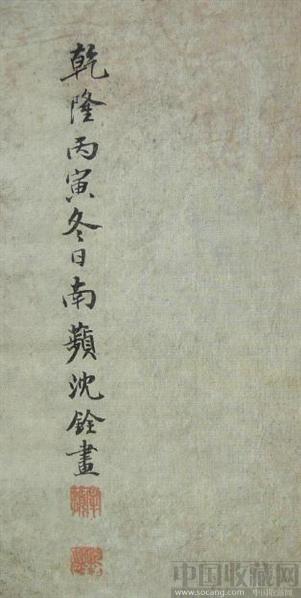 乾隆丙寅冬日南蘋沈銓畫
中国收藏网
www.socang.com 中国收藏网